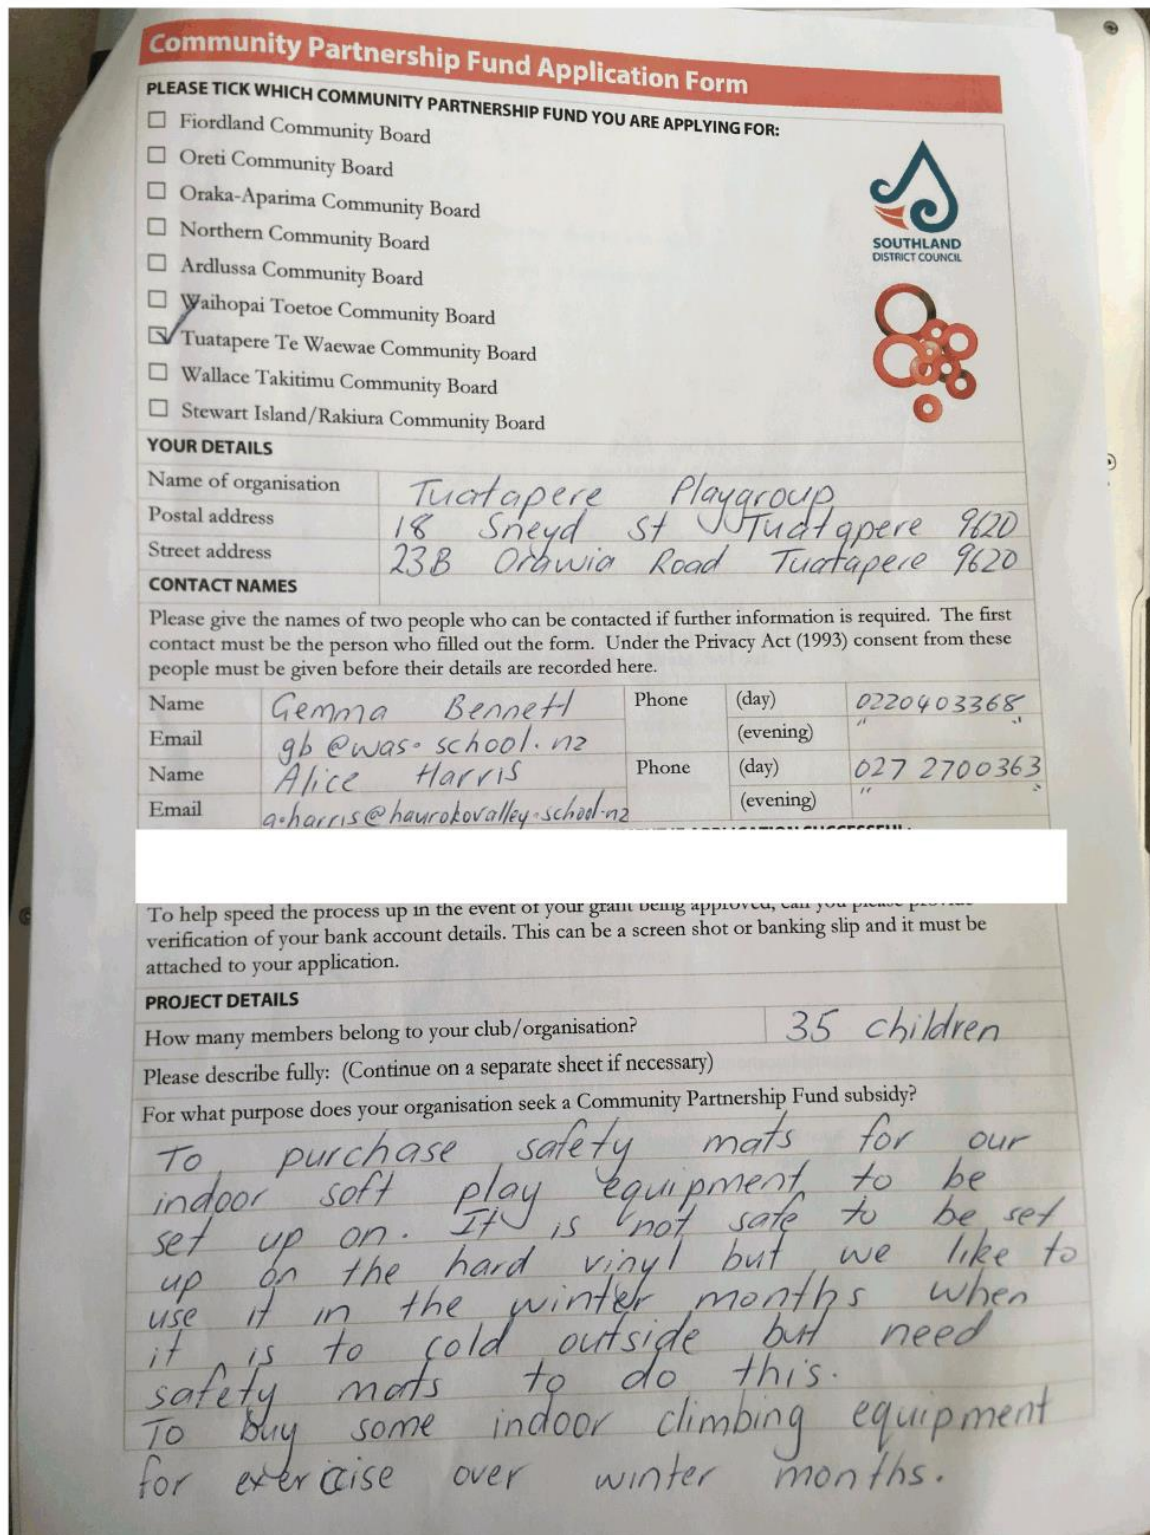 Community Partnership Fund Application Form
PLEASE TICK WHICH COMMUNITY PARTNERSHIP FUND YOU ARE APPLYING FOR:
Fiordland Community Board
Oreti Community Board
Oraka-Aparima Community Board
Northern Community Board
Ardlussa Community Board
Waihopai Toetoe Community Board
Tuatapere Te Waewae Community Board
Wallace Takitimu Community Board
Stewart Island/Rakiura Community Board
SOUTHLAND
DISTRICT COUNCIL
YOUR DETAILS
Name of organisation Tuatapere Playgroup
Postal address 18 Sneyd St Tuatapere 9620
Street address 23B Orawia Road Tuatapere 9620
CONTACT NAMES
Please give the names of two people who can be contacted if further information is required. The first
contact must be the person who filled out the form. Under the Privacy Act (1993) consent from these
people must be given before their details are recorded here.
Name Gemma Bennett Phone (day) 0220403368
Email gb@was.school.nz (evening) " "
Name Alice Harris Phone (day) 027 2700363
Email a.harris@haurokovalley.school.nz (evening) " "
To help speed the process up in the event of your grant being approved, can you please provide
verification of your bank account details. This can be a screen shot or banking slip and it must be
attached to your application.
PROJECT DETAILS
How many members belong to your club/organisation? 35 children
Please describe fully: (Continue on a separate sheet if necessary)
For what purpose does your organisation seek a Community Partnership Fund subsidy?
To purchase safety mats for our
indoor soft play equipment to be
set up on. It is not safe to be set
up on the hard vinyl but we like to
use it in the winter months when
it is to cold outside but need
safety mats to do this.
To buy some indoor climbing equipment
for exercise over winter months.